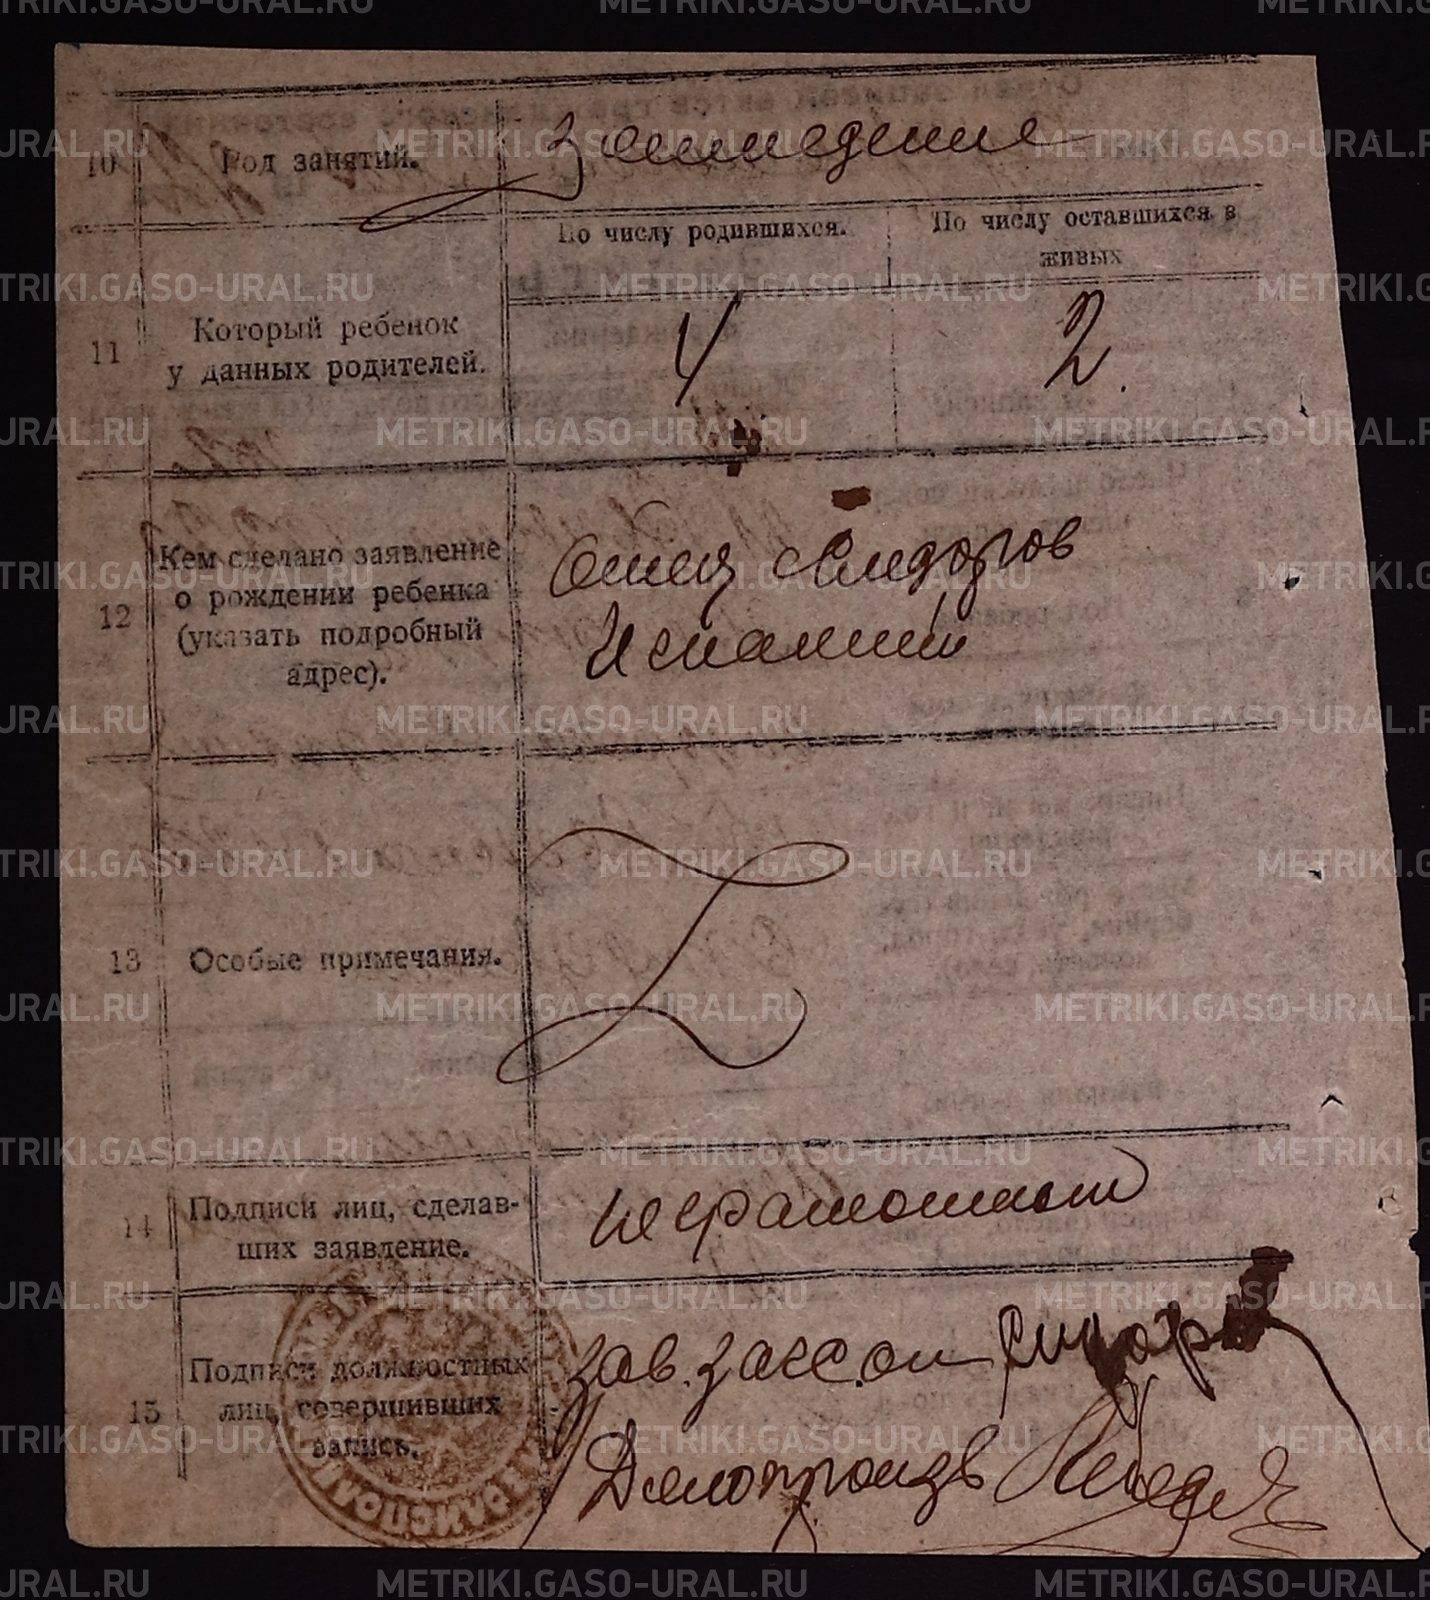 10 Род занятий. Земледелие
По числу родившихся. По числу оставшихся в
живых
11 Который ребенок
у данных родителей. 4 2.
12 Кем сделано заявление
о рождении ребенка
(указать подробный
адрес).
Отец Сидоров
13 Особые примечания.
14 Подписи лиц, сделав-
ших заявление.
неграмотный
15 Подписи должностных
лиц, совершивших
запись.
Зав. загсом
Делопроизв
METRIKI.GASO-URAL.RU